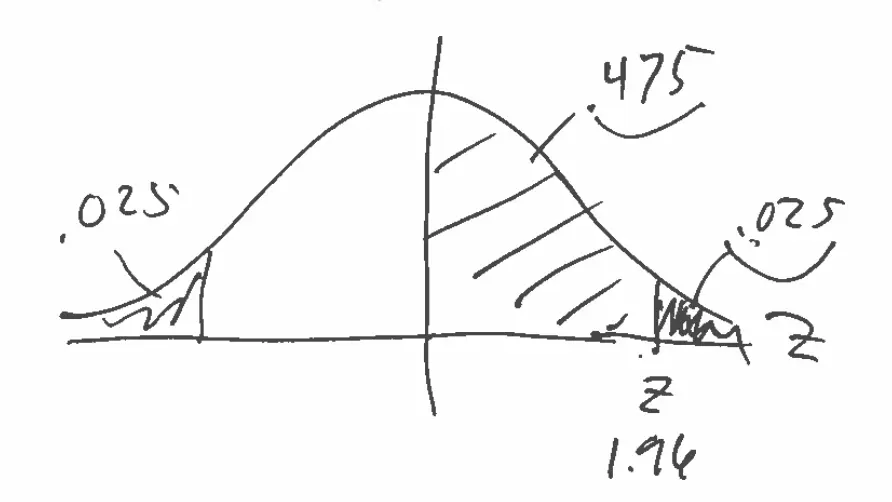 .475
.025
.025
Z
Z
1.96